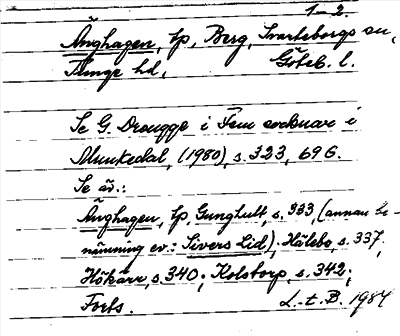 1–2.
Änghagen, tp, Berg, Svarteborgs sn,
Tunge hd, Göteb. l.
Se G. Drougge i Fem socknar i
Munkedal, (1980), s. 323, 696.
Se äv.:
Änghagen, tp, Gunghult, s. 333, (annan be-
nämning ev.: Sivers Lid); Hälebo, s. 337,
Hökärr, s. 340; Kolstorp, s. 342;
Forts. L.-t. B. 1984